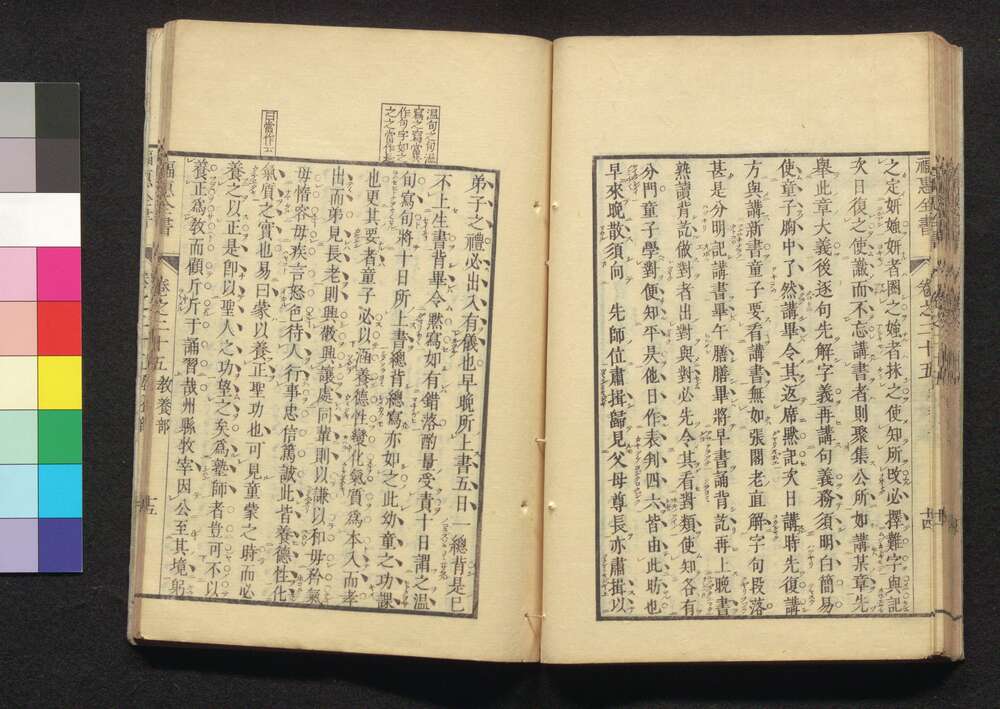 福惠全書
卷之二十五
十四
之定妍媸妍者圈之媸者抹之使知所改必擇難字與記
次日復之使識而不忘講書者則聚集公所如講某章先
舉此章大義後逐句先解字義再講句義務須明白簡易
使童子胸中了然講畢令其返席默記次日講時先復講
方與講新書童子要看講書無如張閣老直解字句段落
甚是分明記講書畢午膳膳畢將早書誦背訖再上晚書
熟讀背訖做對者出對與對必先令其看對類使知各有
分門童子學對便知平昃他日作表判四六皆由此昉也
早來晚散須向 先師位肅揖歸見父母尊長亦肅揖以
弟子之禮必出入有儀也早晚所上書五日一總背是已
不上生書背畢令默寫如有錯落酌量受責十日謂之溫
句寫句將十日所上書總背總寫亦如之此幼童之功課
也更其要者童子必以涵養德性變化氣質爲本入而孝
出而弟見長老則興徹興讓處同輩則以謙以和毋矜氣
毋惰容毋疾言怒色待人行事忠信篤誠此皆養德性化
氣質之實也易曰蒙以養正聖功也可見童蒙之時而必
養之以正是卽以聖人之功望之矣爲塾師者豈可不以
養正爲教而顧斤斤于誦習哉州縣牧宰因公至其境躬
曰當作
福惠全書
卷之二十五
教養部
十五